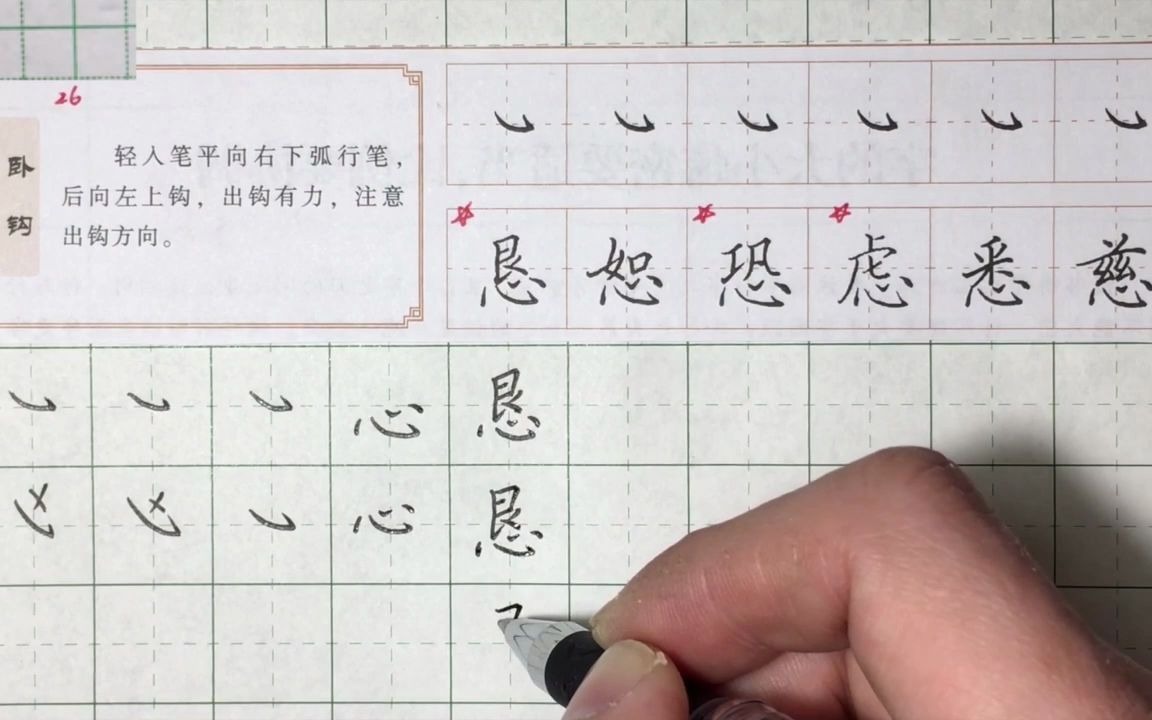 26
卧钩
轻入笔平向右下弧行笔，
后向左上钩，出钩有力，注意
出钩方向。
恳 恕 恐 虑 悉 慈
心 恳
心 恳